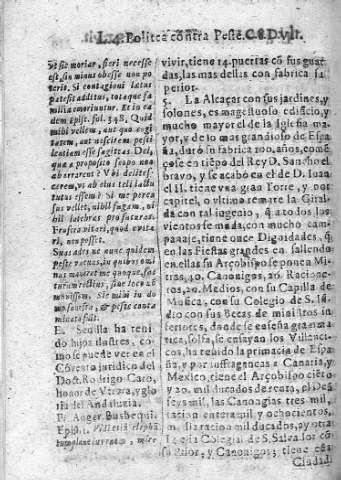 L.4. Politca cõntra Peste. C.8.D.vlt.
vt sic moriar, fieri necesse
est, sin minus obesse non po
terit. Si contagioni latus
patefit additus, tota que fa
milia moriuntur. Et in ea
dem Epist. fol. 348. Quid
mihi vellem, aut quo cogi
tarem, aut noscitem pesti
lentiam esse sagittas Dei,
quæ a proposito scopo non
aberrarent? Vbi delites-
cerem, vt ab eius teli iactu
tutus essem? Si me percu
sus vellet, nihil fugam, ni
hil latebras profuturas.
Frustra vitari, quod evita
ri, non posset.
Suas adra ne nunc quidem
peste vacuas, in quibus omi
nus moveret me quoque, sa
turum missurus, sine loco ab
missum. Sic mihi in do
mo &c.
E. Seuilla ha teni
do hijos ilustres, co-
mo se puede ver en el
Côuento juridico del
Doct. Rodrigo Caro,
honor de Vtrera, y glo
ria del Andaluzia.
F. Auger Busbequi.
Epist.
vivir, tiene 14. puertas cõ sus guar
das, las mas dellas con fabrica su
perior.
5. La Alcaçar con sus jardines, y
solones, es magestuoso edificio, y
mucho mayor el de la Iglesia ma-
yor, y de lo mas grandioso de Espa
ña, duró su fabrica 100. años, comẽ
çose en tiẽpo del Rey D. Sancho el
bravo, y se acabò en el de D. Iuan
el II. tiene vna gran Torre, y por
capitel, o vltimo remate la Giral-
da con tal ingenio, q̃ a todos los
vientos se muda, con mucho cam-
panaje, tiene once Dignidades, q̃
en las Fiestas grandes en saliendo
en ellas su Arçobispo se ponen Mi-
tras, 40. Canonigos, 20. Racione-
ros, 20. Medios, con su Capilla de
Musica, con su Colegio de S. Isi
dro con sus Becas de ministros in
feriores, donde se enseña grama-
tica, solfa, se ensayan los Villanci-
cos, ha tenido la primacia de Espa
ña, y por suffraganeas a Canaria, y
Mexico, tiene el Arçobispo ciẽto
y 20. mil ducados de renta, el Deã
seys mil, las Canogias tres mil,
racion entera mil y ochocientos,
media racion mil ducados, ay otra
Iglesia Colegial de S. Saluador cõ
su Prior, y Canonigos, tiene esta
Ciudad